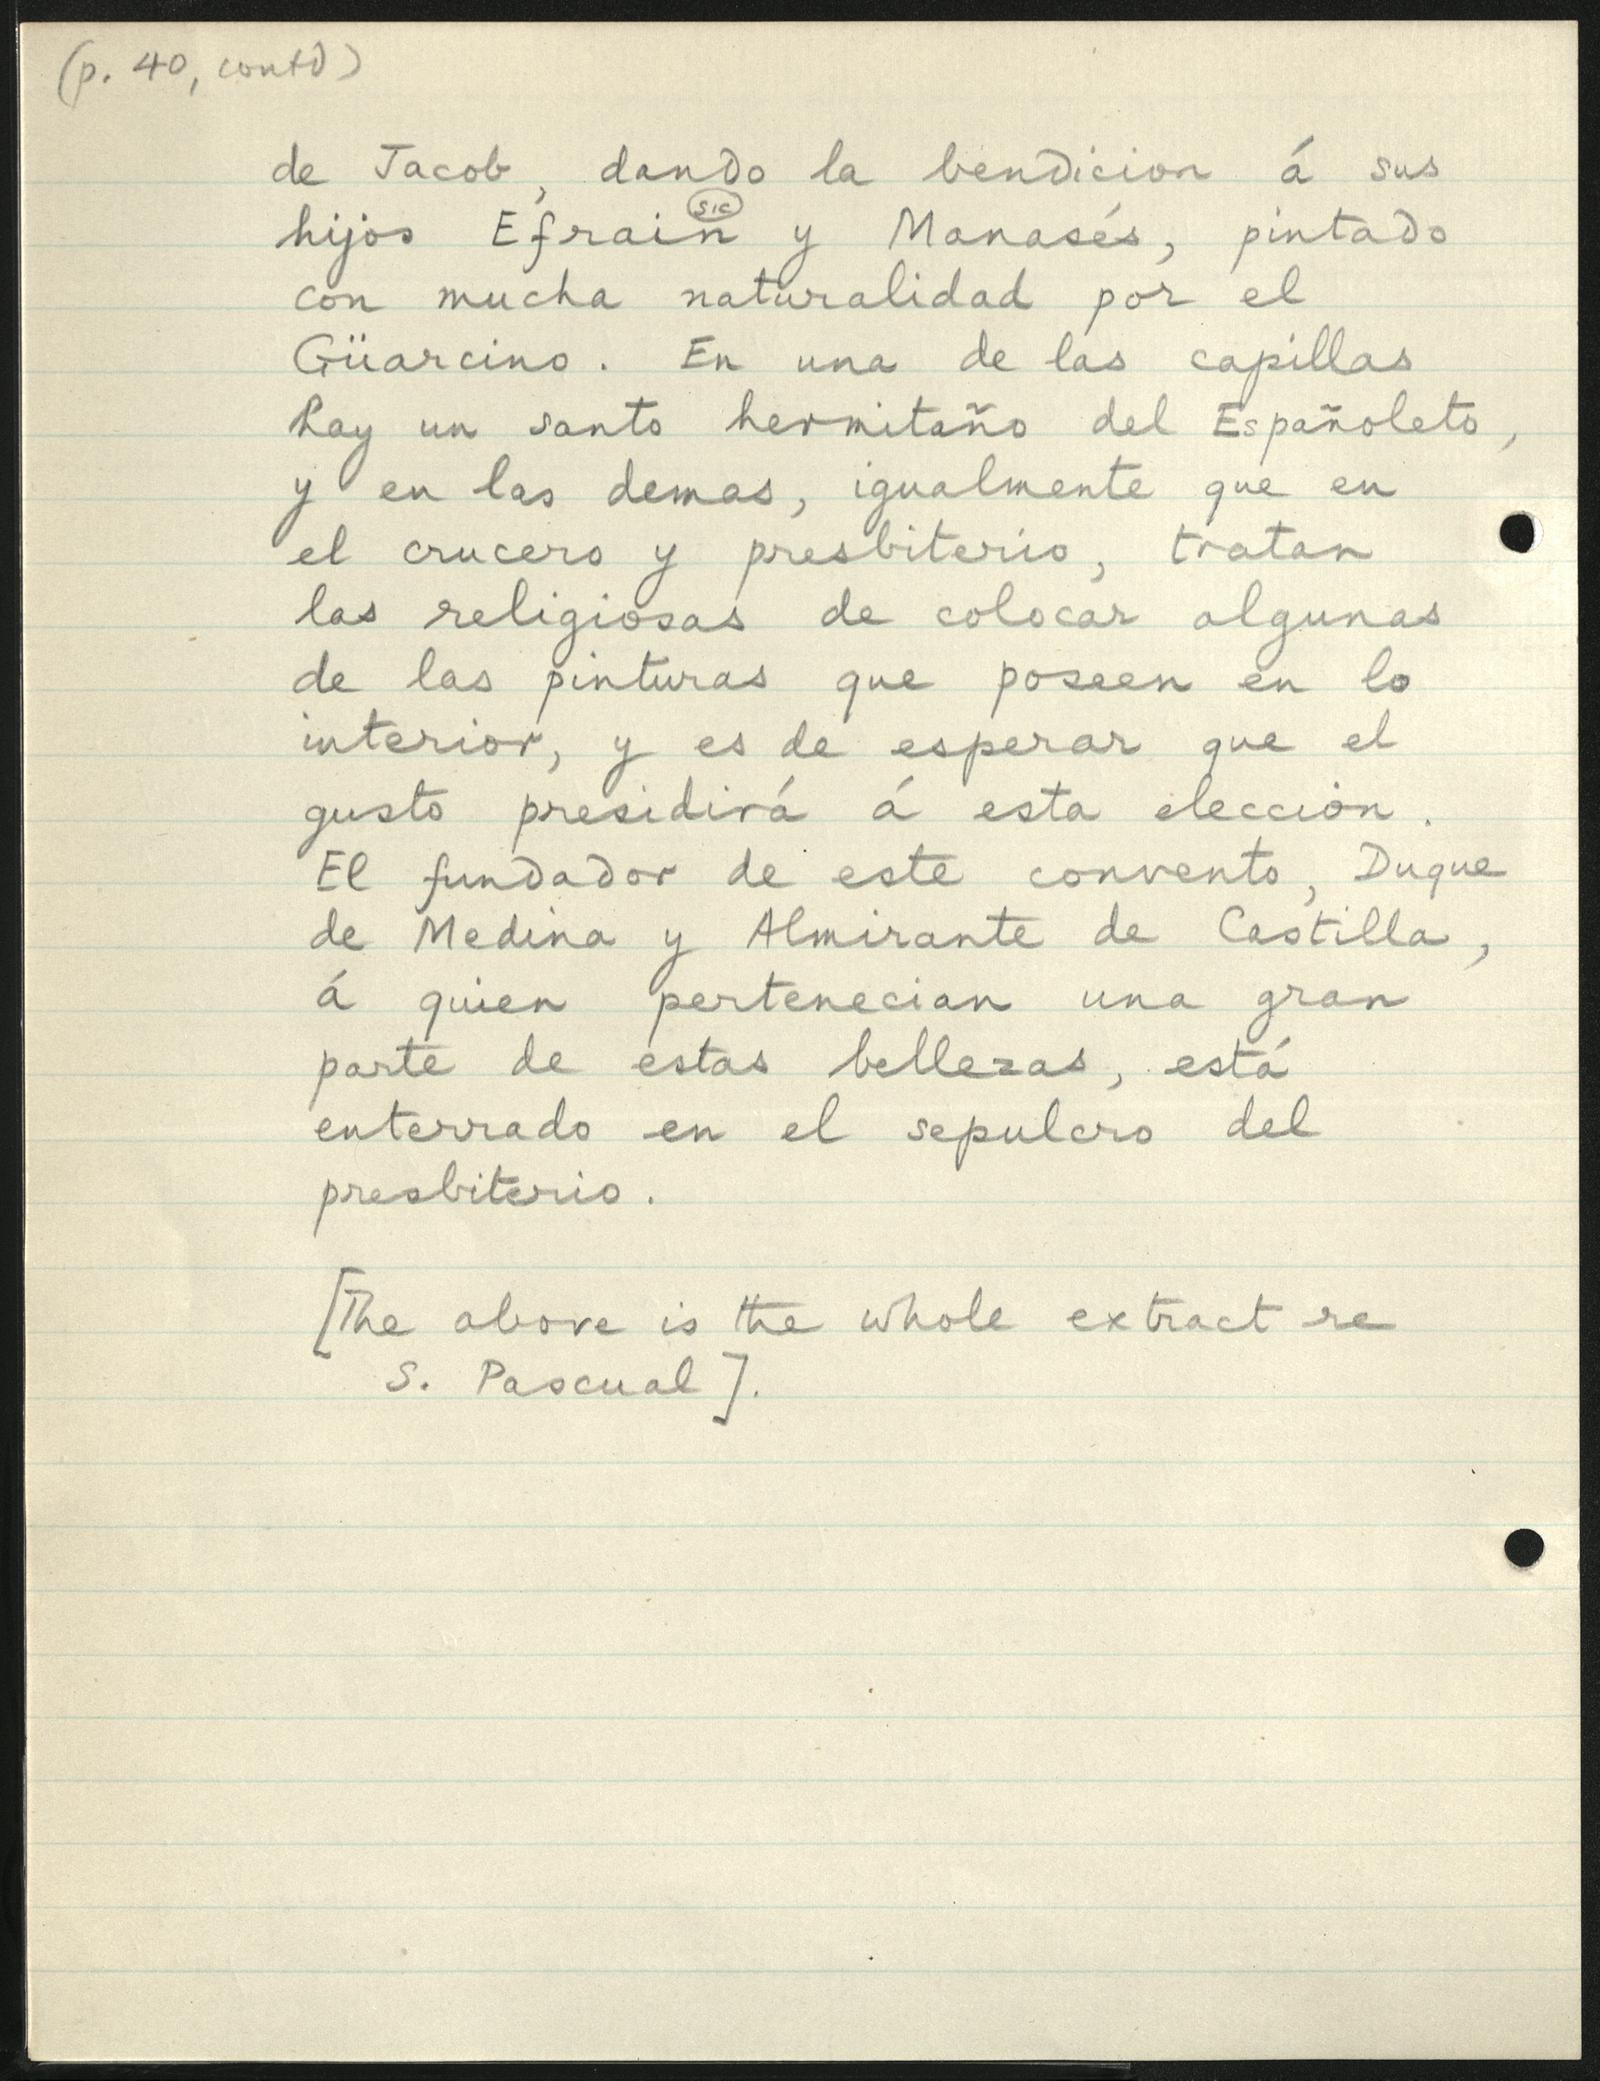 (p. 40, contd)
de Jacob, dando la bendicion á sus
sic
hijos Efrain y Manasés, pintado
con mucha naturalidad por el
Güarcino. En una de las capillas
hay un santo hermitaño del Españoleto,
y en las demas, igualmente que en
el crucero y presbiterio, tratan
las religiosas de colocar algunas
de las pinturas que poseen en lo
interior, y es de esperar que el
gusto presidirá á esta eleccion.
El fundador de este convento, Duque
de Medina y Almirante de Castilla,
á quien pertenecian una gran
parte de estas bellezas, está
enterrado en el sepulcro del
presbiterio.
[The above is the whole extract re
S. Pascual].